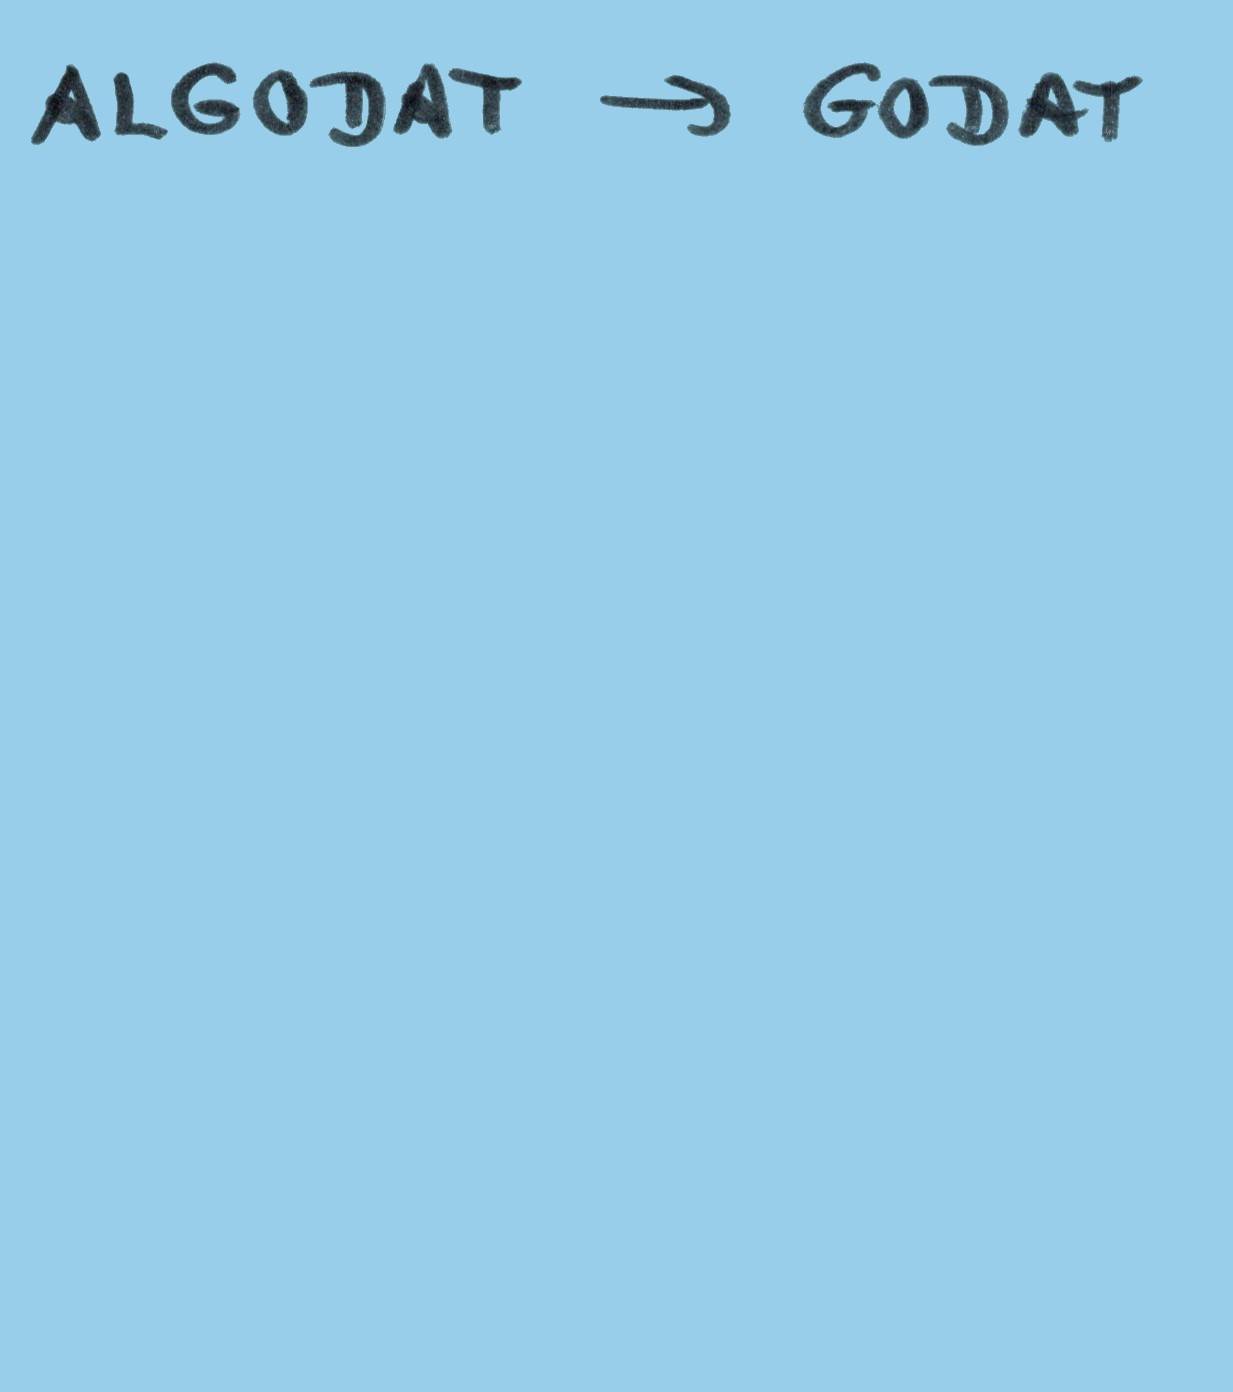 ALGODAT → GODAT